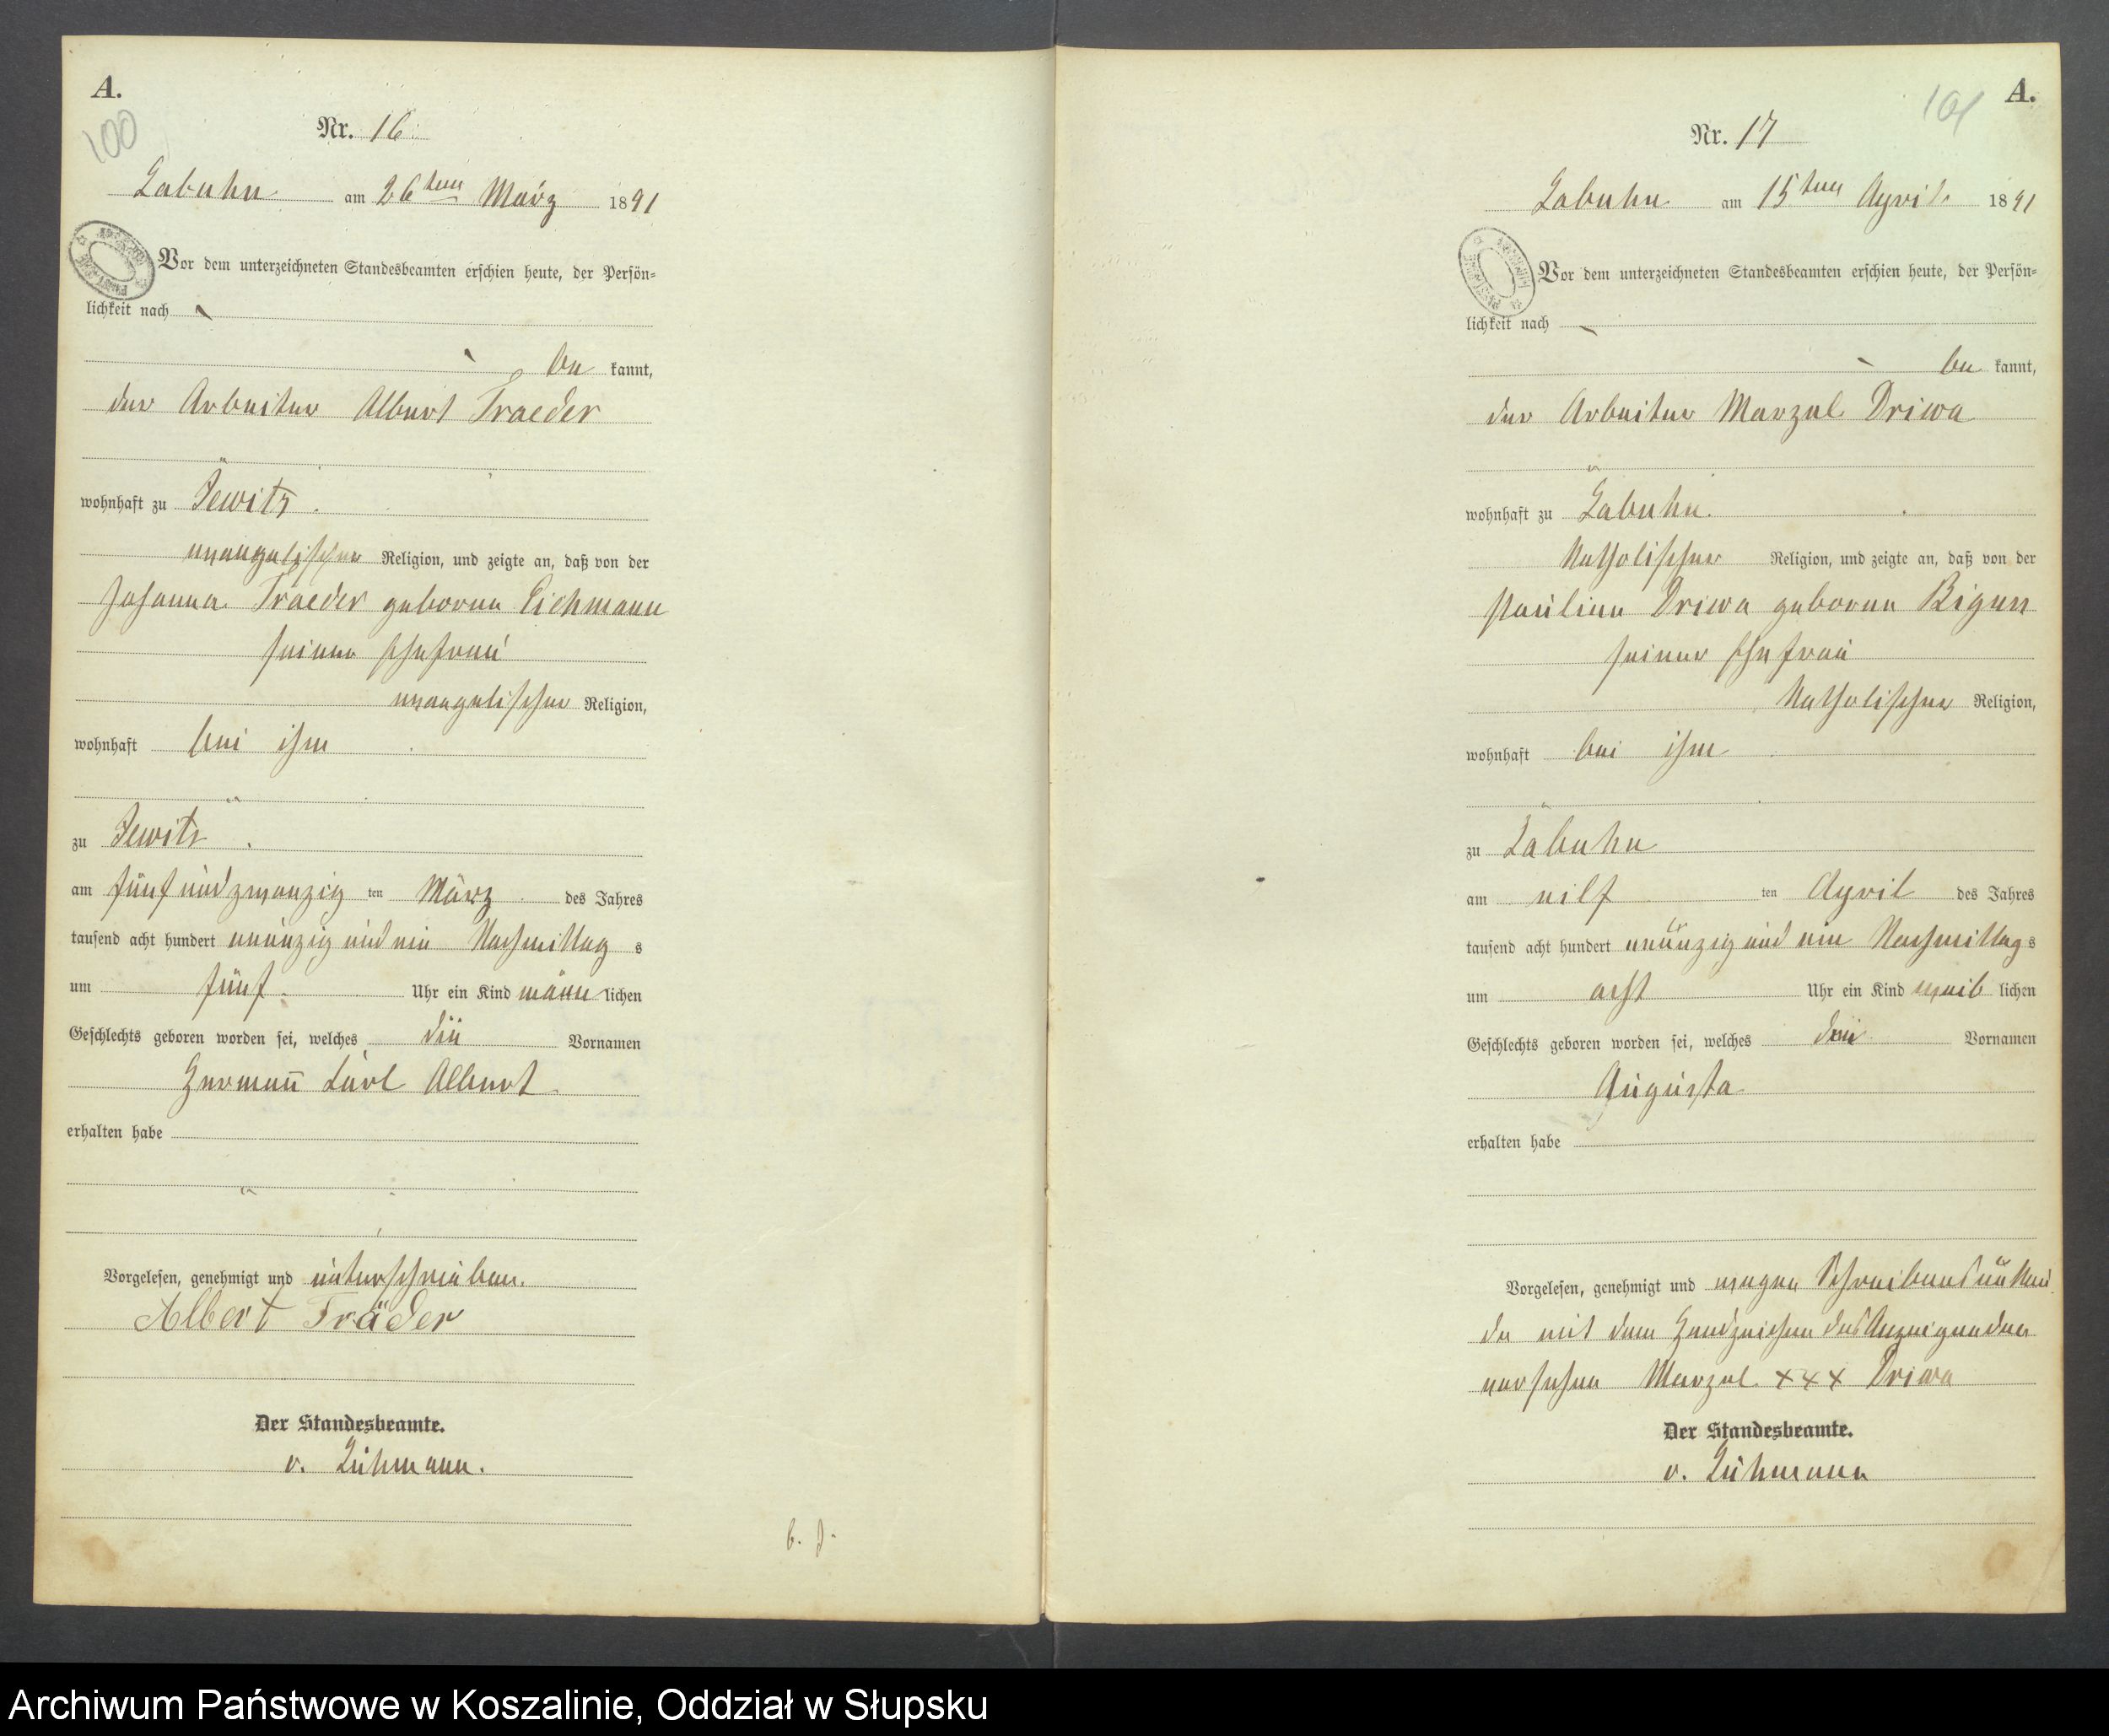 A.
100
Nr. 16.
Labuhn am 26ten März 1891
Vor dem unterzeichneten Standesbeamten erschien heute, der Persön=
lichkeit nach
be kannt,
der Arbeiter Albert Traeder
wohnhaft zu Jewitz.
evangelischer Religion, und zeigte an, daß von der
Johanna Traeder geborne Eichmann
seiner Ehefrau
evangelischer Religion,
wohnhaft bei ihm
zu Jewitz.
am fünf und zwanzig ten März des Jahres
tausend acht hundert neunzig und ein Nachmittag s
um fünf Uhr ein Kind männ lichen
Geschlechts geboren worden sei, welches die Vornamen
Hermann Carl Albert
erhalten habe
Vorgelesen, genehmigt und unterschrieben.
Albert Träder
Der Standesbeamte.
v. Lühmann.
A.
101
Nr. 17
Labuhn am 15ten April 1891
Vor dem unterzeichneten Standesbeamten erschien heute, der Persön=
lichkeit nach
be kannt,
der Arbeiter Marzel Driwa
wohnhaft zu Labuhn.
Katholischer Religion, und zeigte an, daß von der
Pauline Driwa geborne Bigus
seiner Ehefrau
Katholischer Religion,
wohnhaft bei ihm
zu Labuhn
am eilf ten April des Jahres
tausend acht hundert neunzig und ein Nachmittag s
um acht Uhr ein Kind weib lichen
Geschlechts geboren worden sei, welches den Vornamen
Augusta
erhalten habe
Vorgelesen, genehmigt und wegen Schreibensunkun
de mit dem Handzeichen des Anzeigenden
versehen Marzel +++ Driwa
Der Standesbeamte.
v. Lühmann
Archiwum Państwowe w Koszalinie, Oddział w Słupsku